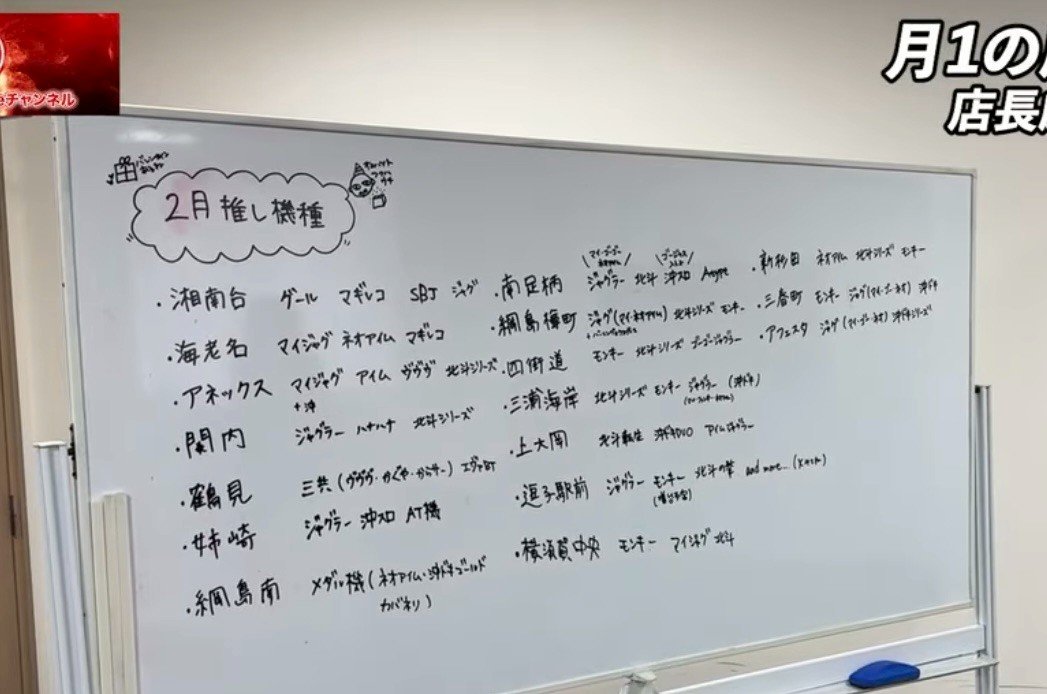 チャンネル
月1の
店長
2月推し機種
・湘南台 グール マギレコ SBJ ジャグ
・海老名 マイジャグ ネオアイム マギレコ
・アネックス マイジャグ アイム ヴヴヴ 北斗シリーズ
+沖
・関内 ジャグラー ハナハナ 北斗シリーズ
・鶴見 三共(ヴヴヴ・かぐや・からサー) エヴァBT
・姉崎 ジャグラー 沖スロ AT機
・綱島南 メダル機(ネオアイム・沖ドキゴールド
カバネリ)
マイ・ゴーゴー
・南足柄 ジャグラー 北斗 沖スロ Atype
・綱島樽町 ジャグ(マイ・ネオアイム) 北斗シリーズ モンキー
・四街道 モンキー 北斗シリーズ ゴーゴージャグラー
・三浦海岸 北斗シリーズ モンキー ジャグラー (沖ドキ)
・上大岡 北斗転生 沖ドキDUO アイムジャグラー
・逗子駅前 ジャグラー モンキー 北斗の拳 and more...
(増台予定)
・横須賀中央 モンキー マイジャグ 北斗
・新杉田 ネオアイム 北斗シリーズ モンキー
・三番町 モンキー ジャグ(マイ・ゴー・ネオ) 沖ドキ
・アフェスタ ジャグ(マイ・ゴー・ネオ) 沖ドキシリーズ